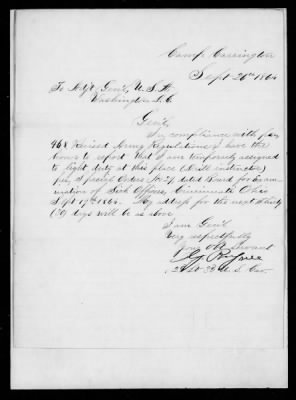 Camp Carrington
Sept 20th 1864
To Adjt. Genl, U.S.A.
Washington D.C.
Genl,
In compliance with par
468 Revised Army Regulations I have the
honor to report that I am temporarily assigned
to light duty at this place (Drill instructor)
per Special Orders No dated Board for Exam-
ination of Sick Officers, Cincinnati Ohio
Sept 17th 1864. My address for the next thirty
(30) days will be as above
I am Genl
Very respectfully
Your Obt Servant